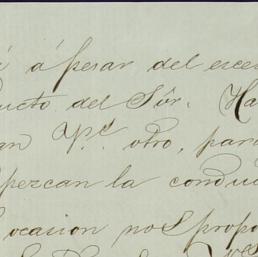 á pesar del esce
ucto del Sôr. Ha
an Vd. otro, para
pezcan la condu
ocasion nos propo